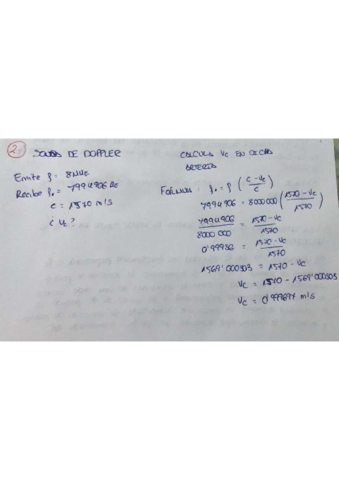 2. SONDA DE DOPPLER
Emite f = 8MHz
Recibe f₀ = 7994906 Hz
c = 1570 m/s
¿ Vc?
CALCULA Vc EN DICHA
ARTERIA
FÓRMULA : f₀ = f (c - Vc / c)
7994906 = 8000000 (1570 - Vc / 1570)
7994906 / 8000 000 = 1570 - Vc / 1570
0'99936 = 1570 - Vc / 1570
1569'000303 = 1570 - Vc
Vc = 1570 - 1569'000303
Vc = 0'999697 m/s